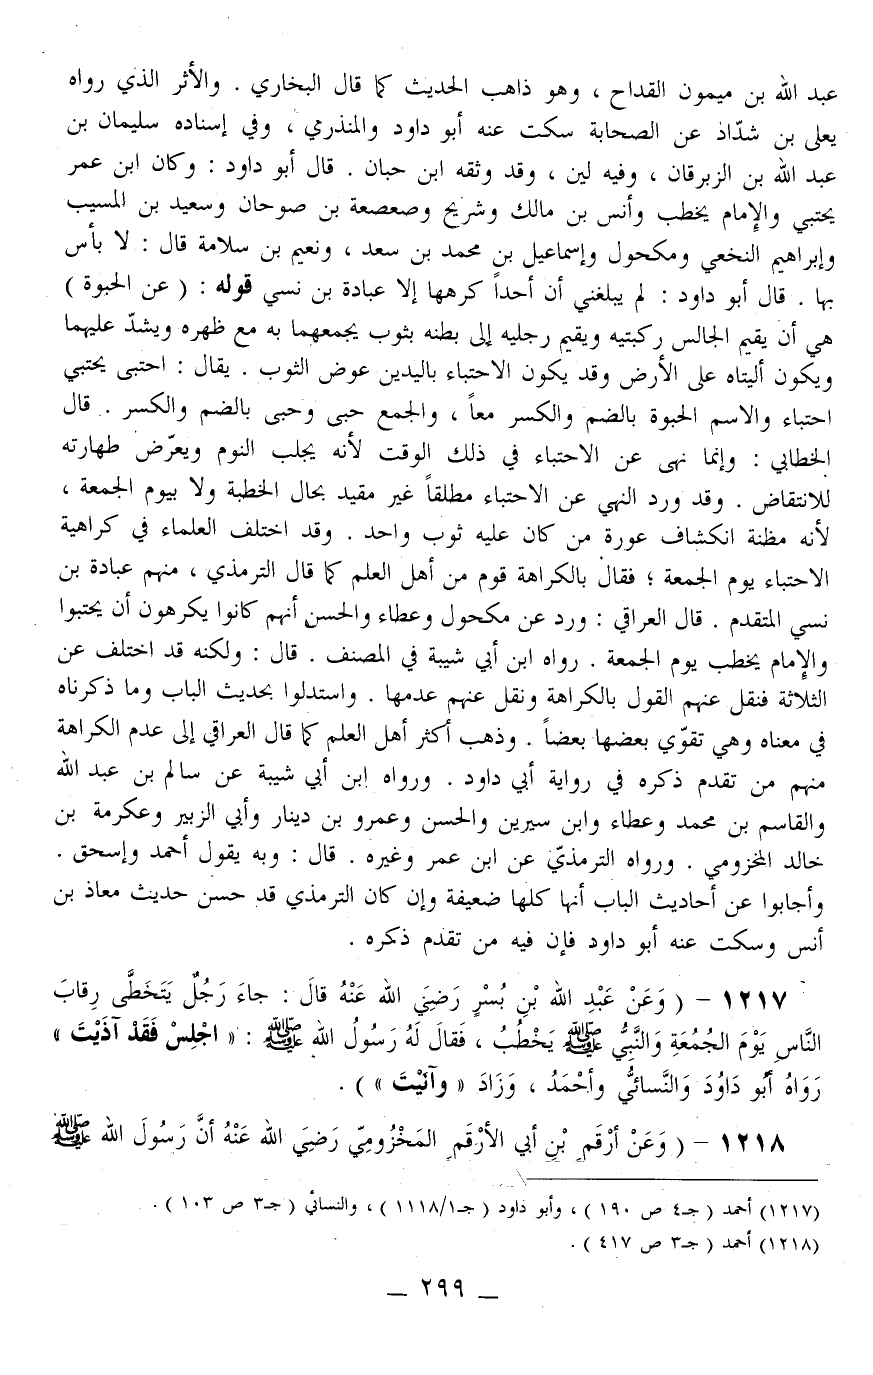 عبد الله بن ميمون القداح ، وهو ذاهب الحديث كما قال البخاري . والأثر الذي رواه
يعلى بن شدّاد عن الصحابة سكت عنه أبو داود والمنذري ، وفي إسناده سليمان بن
عبد الله بن الزبرقان ، وفيه لين ، وقد وثقه ابن حبان . قال أبو داود : وكان ابن عمر
يحتبي والإمام يخطب وأنس بن مالك وشريح وصعصعة بن صوحان وسعيد بن المسيب
وإبراهيم النخعي ومكحول وإسماعيل بن محمد بن سعد ، ونعيم بن سلامة قال : لا بأس
بها . قال أبو داود : لم يبلغني أن أحداً كرهها إلا عبادة بن نسي قوله : ( عن الحبوة )
هي أن يقيم الجالس ركبتيه ويقيم رجليه إلى بطنه بثوب يجمعهما به مع ظهره ويشدّ عليهما
ويكون أليتاه على الأرض وقد يكون الاحتباء باليدين عوض الثوب . يقال : احتبى يحتبي
احتباء والاسم الحبوة بالضم والكسر معاً ، والجمع حبى وحبى بالضم والكسر . قال
الخطابي : وإنما نهى عن الاحتباء في ذلك الوقت لأنه يجلب النوم ويعرّض طهارته
للانتقاض . وقد ورد النهي عن الاحتباء مطلقاً غير مقيد بحال الخطبة ولا بيوم الجمعة ،
لأنه مظنة انكشاف عورة من كان عليه ثوب واحد . وقد اختلف العلماء في كراهية
الاحتباء يوم الجمعة ؛ فقال بالكراهة قوم من أهل العلم كما قال الترمذي ، منهم عبادة بن
نسي المتقدم . قال العراقي : ورد عن مكحول وعطاء والحسن أنهم كانوا يكرهون أن يحتبوا
والإمام يخطب يوم الجمعة . رواه ابن أبي شيبة في المصنف . قال : ولكنه قد اختلف عن
الثلاثة فنقل عنهم القول بالكراهة ونقل عنهم عدمها . واستدلوا بحديث الباب وما ذكرناه
في معناه وهي تقوّي بعضها بعضاً . وذهب أكثر أهل العلم كما قال العراقي إلى عدم الكراهة
منهم من تقدم ذكره في رواية أبي داود . ورواه ابن أبي شيبة عن سالم بن عبد الله
والقاسم بن محمد وعطاء وابن سيرين والحسن وعمرو بن دينار وأبي الزبير وعكرمة بن
خالد المخزومي . ورواه الترمذيّ عن ابن عمر وغيره . قال : وبه يقول أحمد وإسحق .
وأجابوا عن أحاديث الباب أنها كلها ضعيفة وإن كان الترمذي قد حسن حديث معاذ بن
أنس وسكت عنه أبو داود فإن فيه من تقدم ذكره .
١٢١٧ – ( وَعَنْ عَبْدِ الله بْنِ بُسْرٍ رَضِيَ الله عَنْهُ قالَ : جاءَ رَجُلٌ يَتَخَطَّى رِقابَ
النَّاسِ يَوْمَ الجُمُعَةِ وَالنَّبِيُّ ﷺ يَخْطُبُ ، فَقالَ لَهُ رَسُولُ الله ﷺ : « اجْلِسْ فَقَدْ آذَيْتَ »
رَوَاهُ أَبُو دَاوُدَ وَالنَّسائيُّ وأحْمَدُ ، وَزَادَ « وآنَيْتَ » ) .
١٢١٨ – ( وَعَنْ أَرْقَمِ بْنِ أبي الأرْقَمِ المَخْزُومِيّ رَضِيَ الله عَنْهُ أنَّ رَسُولَ الله ﷺ
(١٢١٧) أحمد ( جـ٤ ص ١٩٠ ) ، وأبو داود ( جـ١/١١١٨ ) ، والنسائي ( جـ٣ ص ١٠٣ ) .
(١٢١٨) أحمد ( جـ٣ ص ٤١٧ ) .
— ٢٩٩ —